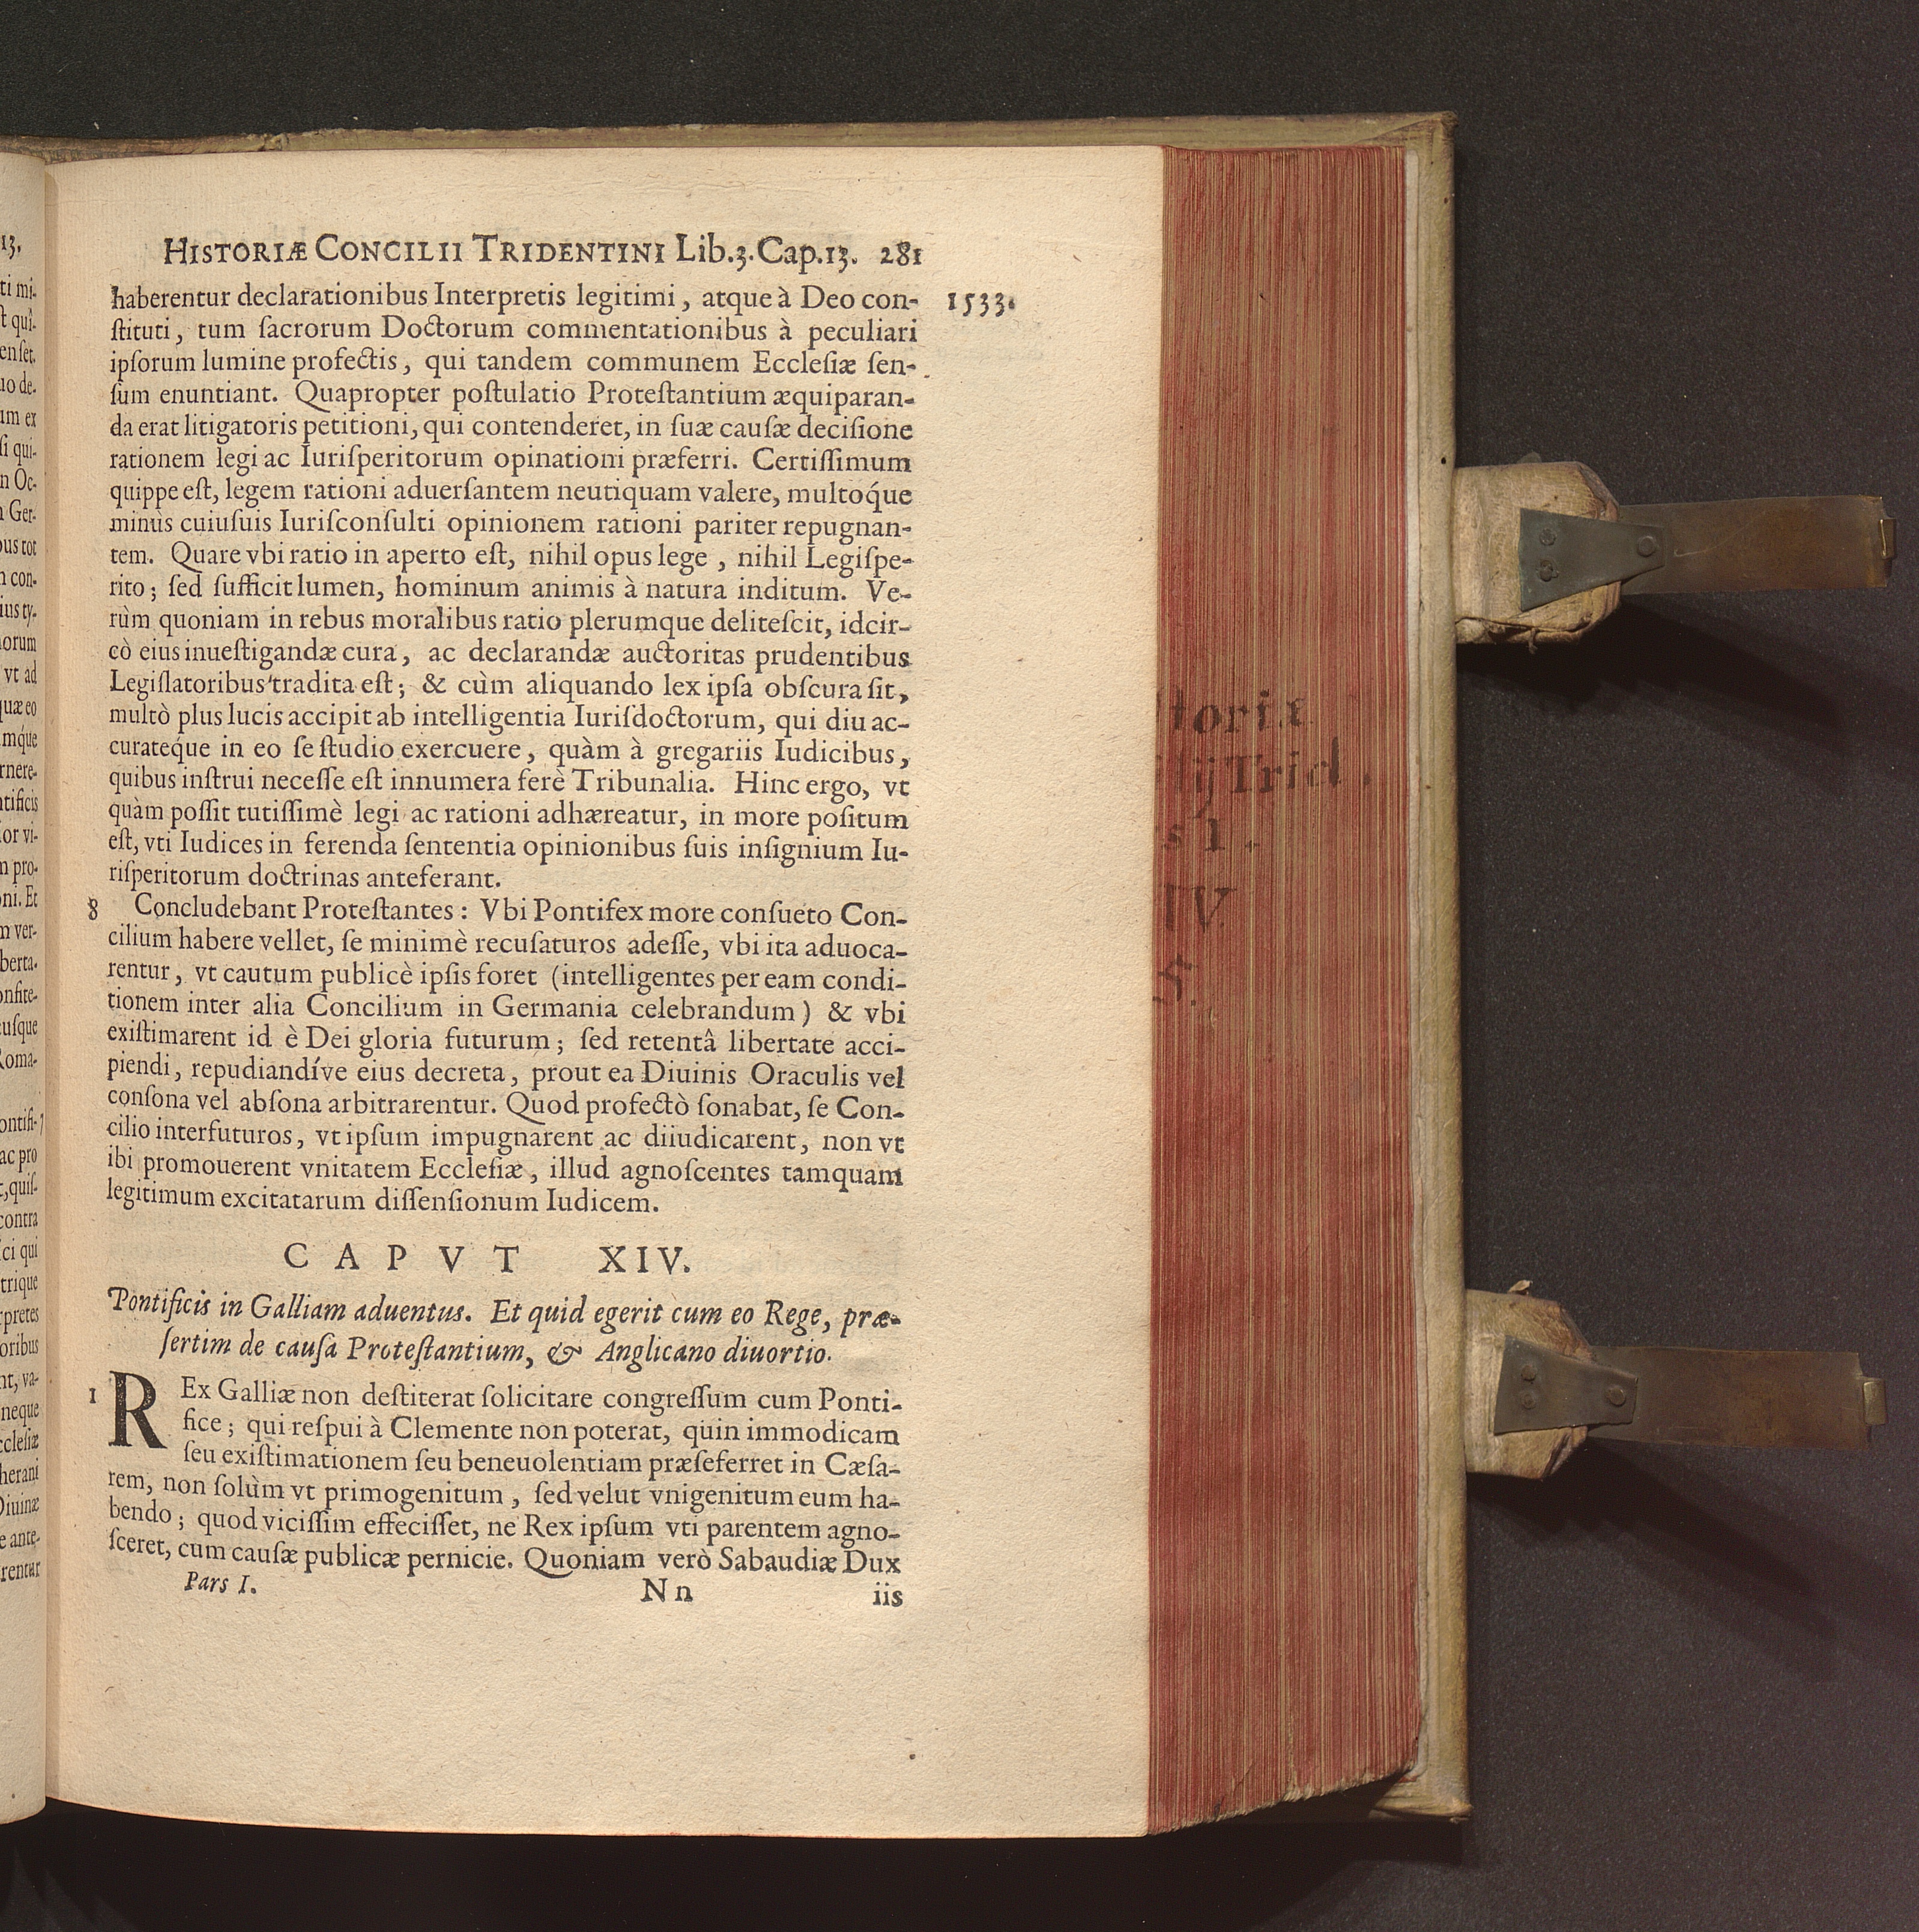 HISTORIÆ CONCILII TRIDENTINI Lib.3.Cap.13. 281
1533.
haberentur declarationibus Interpretis legitimi, atque à Deo con-
ſtituti, tum ſacrorum Doctorum commentationibus à peculiari
ipſorum lumine profectis, qui tandem communem Eccleſiæ ſen-
ſum enuntiant. Quapropter poſtulatio Proteſtantium æquiparan-
da erat litigatoris petitioni, qui contenderet, in ſuæ cauſæ deciſione
rationem legi ac Iuriſperitorum opinationi præferri. Certiſſimum
quippe eſt, legem rationi aduerſantem neutiquam valere, multoq́ue
minùs cuiuſuis Iuriſconſulti opinionem rationi pariter repugnan-
tem. Quare vbi ratio in aperto eſt, nihil opus lege, nihil Legiſpe-
rito; ſed ſufficit lumen, hominum animis à natura inditum. Ve-
rùm quoniam in rebus moralibus ratio plerumque deliteſcit, idcir-
cò eius inueſtigandæ cura, ac declarandæ auctoritas prudentibus
Legiſlatoribus tradita eſt; & cùm aliquando lex ipſa obſcura ſit,
multò plus lucis accipit ab intelligentia Iuriſdoctorum, qui diu ac-
curateque in eo ſe ſtudio exercuere, quàm à gregariis Iudicibus,
quibus inſtrui neceſſe eſt innumera ferè Tribunalia. Hinc ergo, vt
quàm poſſit tutiſſimè legi ac rationi adhæreatur, in more poſitum
eſt, vti Iudices in ferenda ſententia opinionibus ſuis inſignium Iu-
riſperitorum doctrinas anteferant.
8 Concludebant Proteſtantes: Vbi Pontifex more conſueto Con-
cilium habere vellet, ſe minimè recuſaturos adeſſe, vbi ita aduoca-
rentur, vt cautum publicè ipſis foret (intelligentes per eam condi-
tionem inter alia Concilium in Germania celebrandum) & vbi
exiſtimarent id è Dei gloria futurum; ſed retentâ libertate acci-
piendi, repudiandíve eius decreta, prout ea Diuinis Oraculis vel
conſona vel abſona arbitrarentur. Quod profectò ſonabat, ſe Con-
cilio interfuturos, vt ipſum impugnarent ac diiudicarent, non vt
ibi promouerent vnitatem Eccleſiæ, illud agnoſcentes tamquam
legitimum excitatarum diſſenſionum Iudicem.
CAPVT XIV.
Pontificis in Galliam aduentus. Et quid egerit cum eo Rege, præ-
ſertim de cauſa Proteſtantium, & Anglicano diuortio.
1 REx Galliæ non deſtiterat ſolicitare congreſſum cum Ponti-
fice; qui reſpui à Clemente non poterat, quin immodicam
ſeu exiſtimationem ſeu beneuolentiam præſeferret in Cæſa-
rem, non ſolùm vt primogenitum, ſed velut vnigenitum eum ha-
bendo; quod viciſſim effeciſſet, ne Rex ipſum vti parentem agno-
ſceret, cum cauſæ publicæ pernicie. Quoniam verò Sabaudiæ Dux
Pars I. Nn iis
toriæ
ij Trid.
s I.
IV
S.